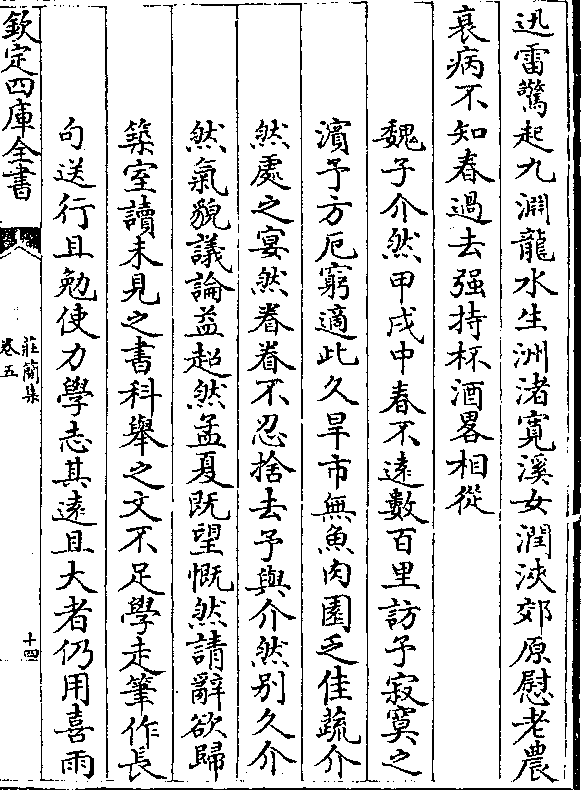 迅雷驚起九淵龍水生洲渚寛溪女潤浹郊原慰老農
衰病不知春過去强持杯酒畧相從
魏子介然甲戌中春不逺數百里訪予寂寞之
濵予方厄窮適此久旱市無魚肉園乏佳蔬介
然處之宴然眷眷不忍捨去予與介然别久介
然氣貌議論益超然孟夏既望慨然請辭欲歸
築室讀未見之書科舉之文不足學走筆作長
句送行且勉使力學志其逺且大者仍用喜雨
欽定四庫全書
莊簡集
卷五
十四